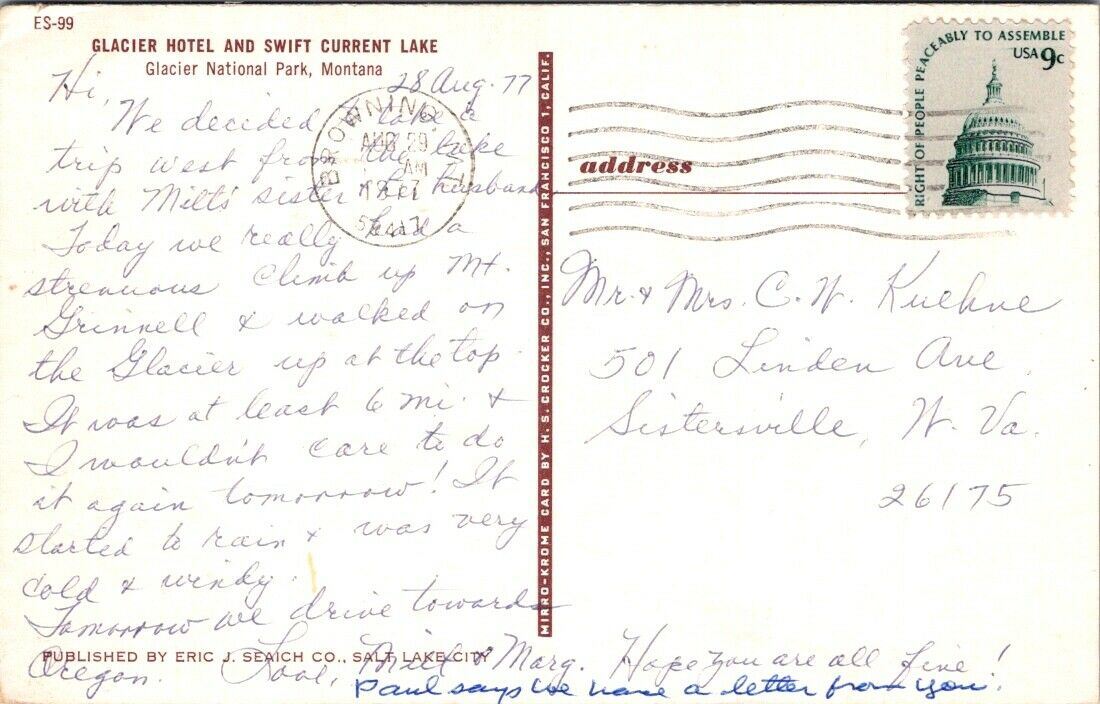 ES-99
GLACIER HOTEL AND SWIFT CURRENT LAKE
Glacier National Park, Montana
28 Aug. 77
Hi,
We decided to take a
trip west from the lake
with Milt's sister & husband
Today we really had a
strenuous climb up Mt.
Grinnell & walked on
the Glacier up at the top.
It was at least 6 mi. &
I wouldn't care to do
it again tomorrow! It
started to rain & was very
cold & windy.
Tomorrow we drive towards
Oregon. Love, Milt & Marg. Hope you are all fine!
Paul says we have a letter from you.
PUBLISHED BY ERIC J. SEAICH CO., SALT LAKE CITY
MIRRO-KROME CARD BY H. S. CROCKER CO., INC., SAN FRANCISCO 1, CALIF.
BROWNING
AUG 29
AM
1977
59417
RIGHT OF PEOPLE PEACEABLY TO ASSEMBLE
USA 9c
address
Mr. & Mrs. C. W. Kuehne
501 Linden Ave.
Sistersville, W. Va.
26175